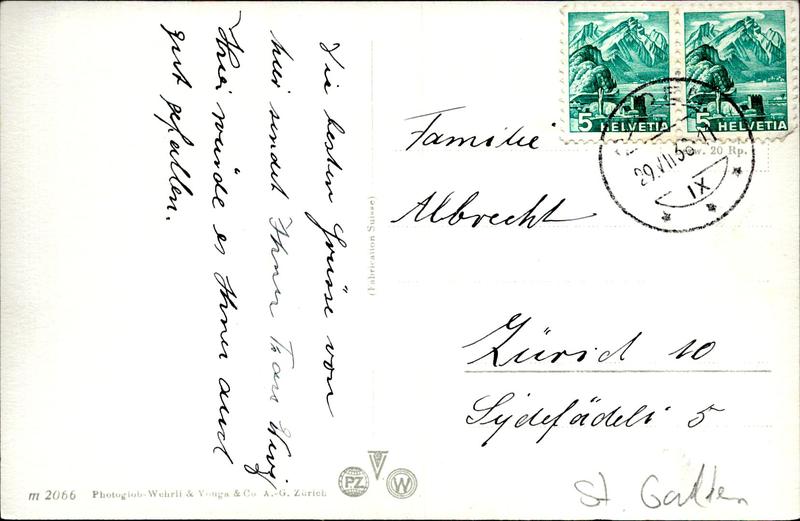 Die besten Grüsse von
hier sendet Ihnen Frau
Hier würde es Ihnen auch
gut gefallen.
(Fabrication Suisse)
5 HELVETIA
5 HELVETIA
w. 20 Rp.
29.VII.38
XI
Familie
Albrecht
Zürich 10
Sydefädeli 5
St. Gallen
m 2066 Photoglob-Wehrli & Vouga & Co. A.-G. Zürich
PZ
V
W